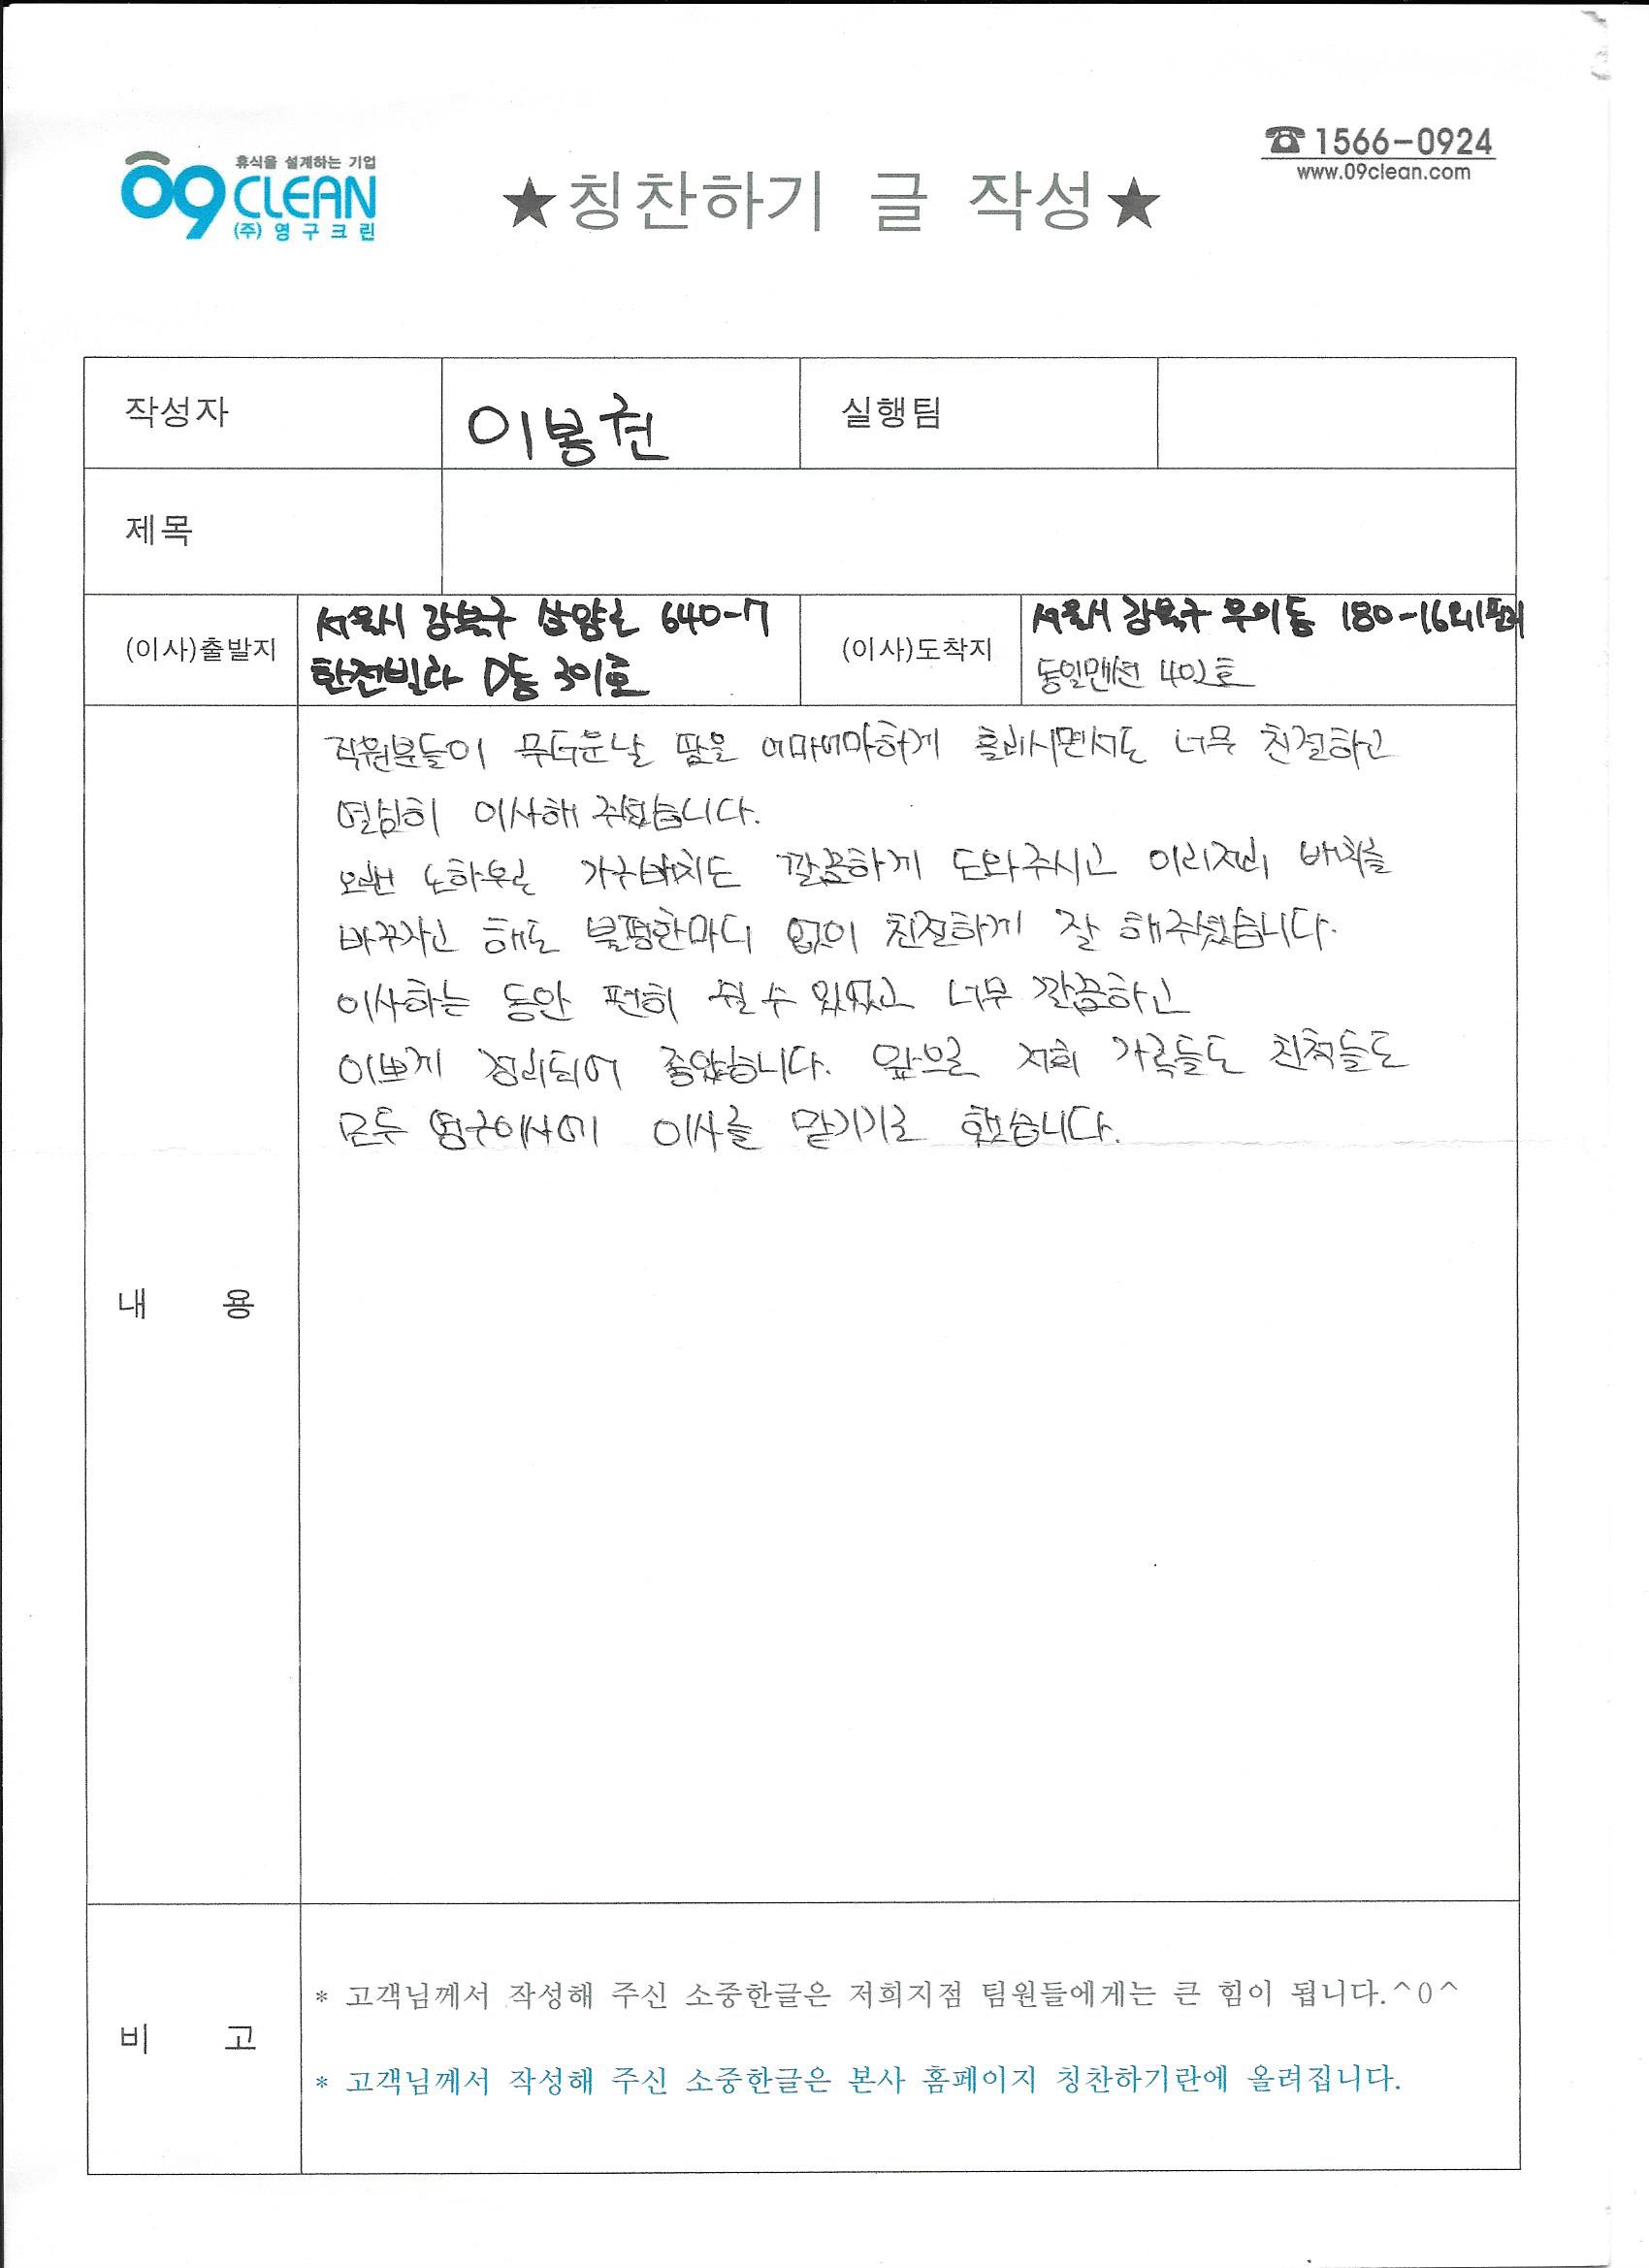 휴식을 설계하는 기업
09CLEAN
(주)영구크린
★칭찬하기 글 작성★
☎1566-0924
www.09clean.com
작성자 이봉권 실행팀
제목
(이사)출발지
서울시 강북구 삼양로 640-7
한전빌라 D동 301호
(이사)도착지
서울시 강북구 우이동 180-16
동일맨션 402호
내 용
직원분들이 무더운날 땀을 어마어마하게 흘리시면서도 너무 친절하고
열심히 이사해 주셨습니다.
오랜 노하우로 가구배치도 깔끔하게 도와주시고 이리저리 배치를
바꾸자고 해도 불평한마디 없이 친절하게 잘 해주셨습니다.
이사하는 동안 편히 쉴 수 있었고 너무 깔끔하고
이쁘게 정리되어 좋았습니다. 앞으로 저희 가족들도 친척들도
모두 영구이사에 이사를 맡기기로 했습니다.
비 고
* 고객님께서 작성해 주신 소중한글은 저희지점 팀원들에게는 큰 힘이 됩니다.^0^
* 고객님께서 작성해 주신 소중한글은 본사 홈페이지 칭찬하기란에 올려집니다.